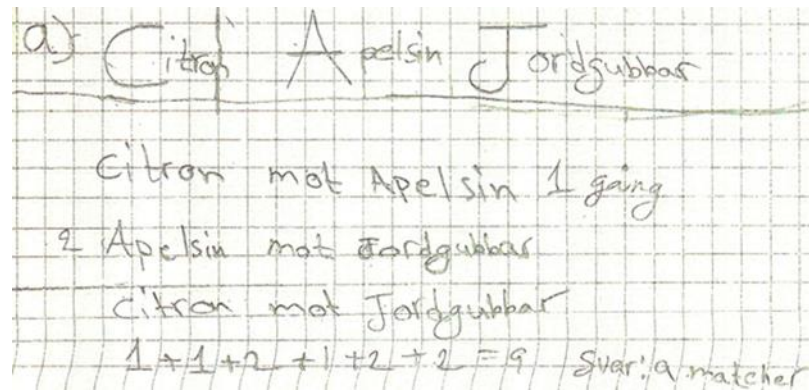 a) Citron Apelsin Jordgubbar
Citron mot Apelsin 1 gång
2 Apelsin mot Jordgubbar
Citron mot Jordgubbar
1+1+2+1+2+2=9 Svar: 9 matcher